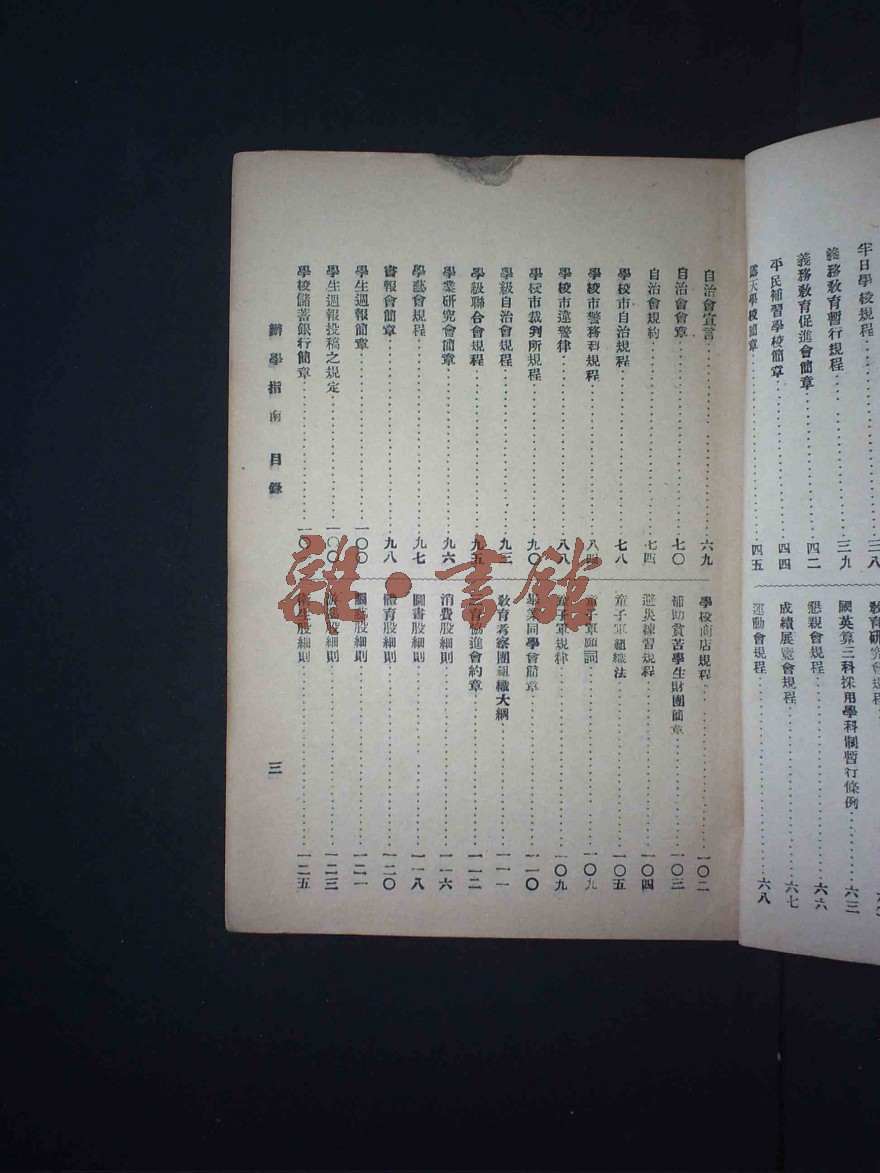 半日學校規程 三八
義務教育暫行規程 三九
義務教育促進會簡章 四二
平民補習學校簡章 四四
露天學校簡章 四五
教育研究會規程
國英算三科採用學科制暫行條例 六三
懇親會規程 六六
成績展覽會規程 六七
運動會規程 六八
自治會宣言 六九
自治會會章 七〇
自治會規約 七四
學校市自治規程 七八
學校市警務科規程 八四
學校市違警律 八八
學校市裁判所規程 九〇
學級自治會規程 九三
學級聯合會規程 九五
學業研究會簡章 九六
學藝會規程 九七
書報會簡章 九八
學生週報簡章 一〇〇
學生週報投稿之規定 一〇〇
學校儲蓄銀行簡章 一〇一
學校商店規程 一〇二
補助貧苦學生財團簡章 一〇三
避災練習規程 一〇四
童子軍組織法 一〇五
童子軍願詞 一〇九
童子軍規律 一〇九
畢業同學會簡章 一一〇
教育考察團組織大綱 一一一
教育協進會約章 一一二
消費股細則 一一六
圖書股細則 一一八
體育股細則 一二〇
園藝股細則 一二一
游藝股細則 一二三
衛生股細則 一二五
辦學指南 目錄
三
雜·書館